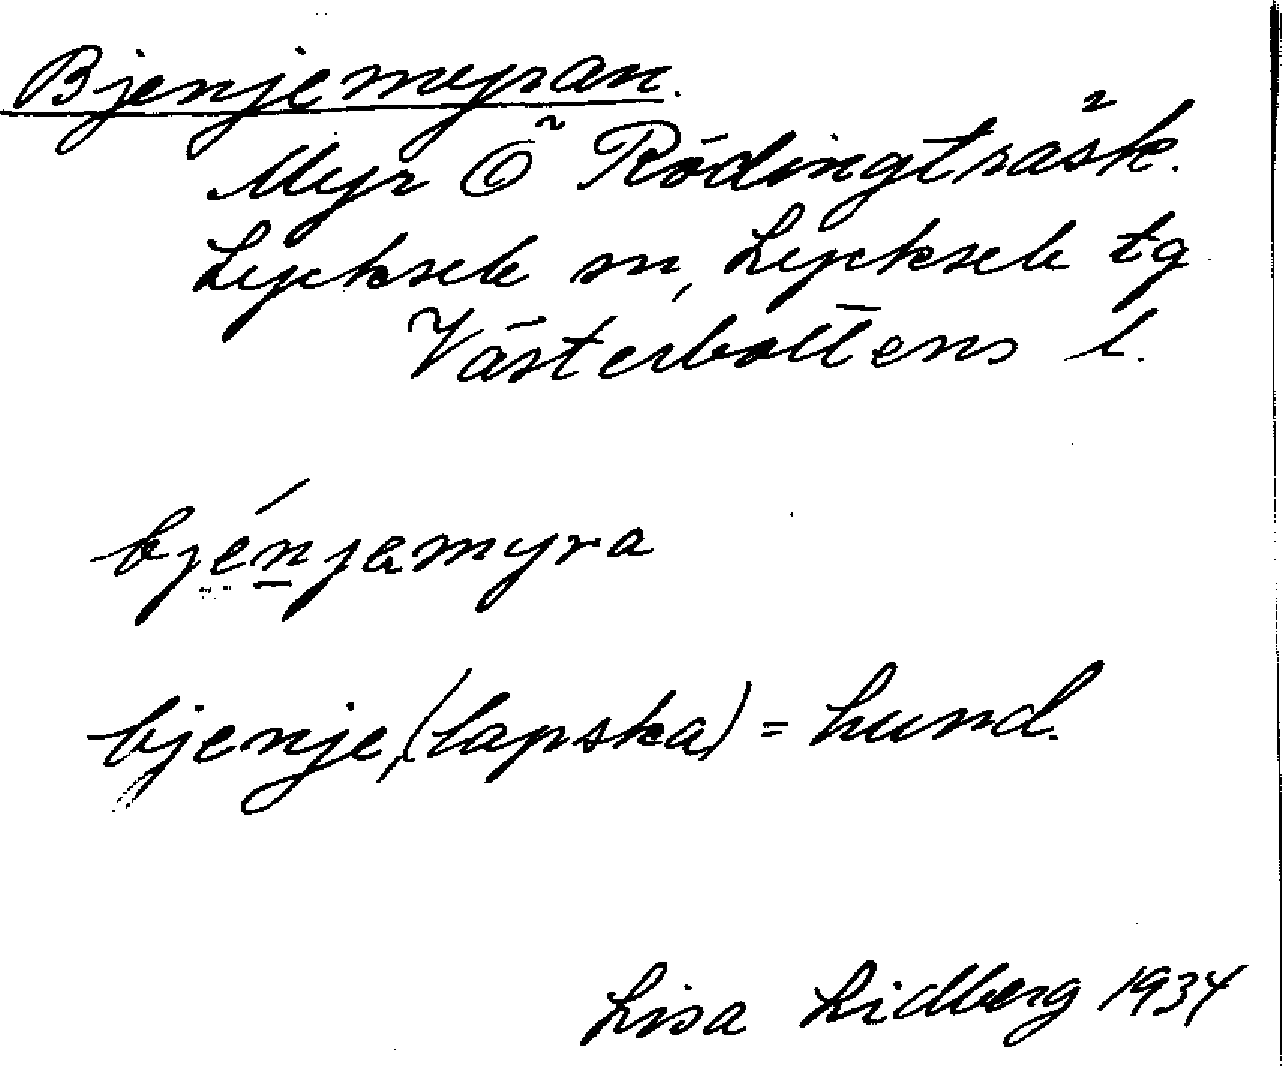 Bjenjemyran.
Myr Ö Rödingträsk.
Lycksele sn, Lycksele tg
Västerbottens l.
bjénjamyra
bjenje, (lapska) = hund.
Lisa Lidberg 1934